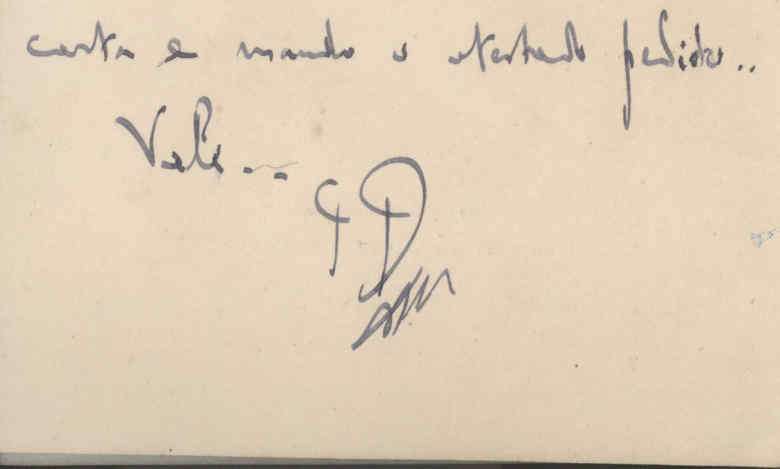 carta e mando o atestado pedido..
Vale...